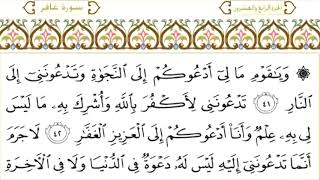 سورة غافر
الجزء الرابع والعشرون
۞ وَيَـٰقَوْمِ مَا لِىٓ أَدْعُوكُمْ إِلَى ٱلنَّجَوٰةِ وَتَدْعُونَنِىٓ إِلَى
ٱلنَّارِ ٤١ تَدْعُونَنِى لِأَكْفُرَ بِٱللَّهِ وَأُشْرِكَ بِهِۦ مَا لَيْسَ
لِى بِهِۦ عِلْمٌ وَأَنَا۠ أَدْعُوكُمْ إِلَى ٱلْعَزِيزِ ٱلْغَفَّـٰرِ ٤٢ لَا جَرَمَ
أَنَّمَا تَدْعُونَنِىٓ إِلَيْهِ لَيْسَ لَهُۥ دَعْوَةٌ فِى ٱلدُّنْيَا وَلَا فِى ٱلْـَٔاخِرَةِ